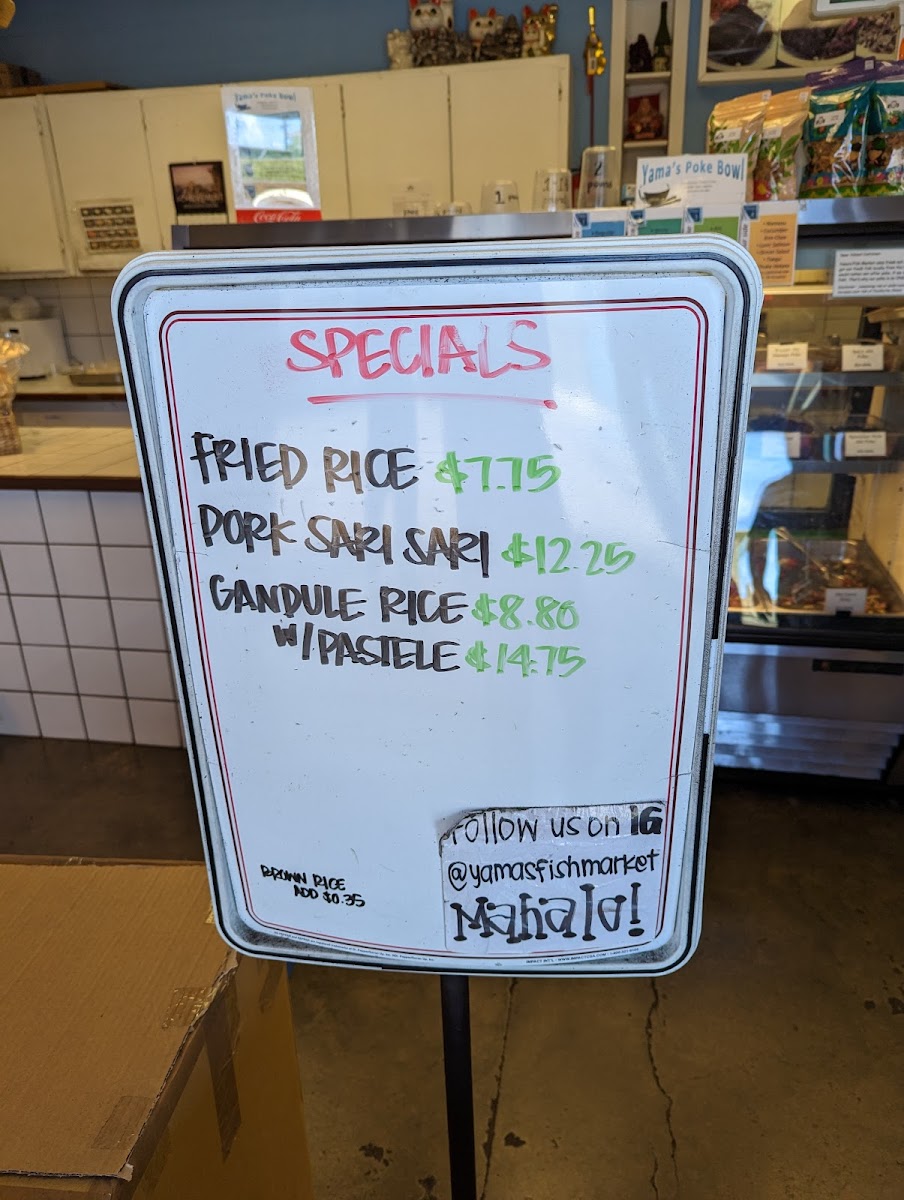 Yama's Poke Bowl
Coca-Cola
Yama's Poke Bowl
SPECIALS
FRIED RICE $7.75
PORK SARI SARI $12.25
GANDULE RICE $8.80
W/ PASTELE $14.75
BROWN RICE
ADD $0.35
Follow us on IG
@yamasfishmarket
Mahalo!